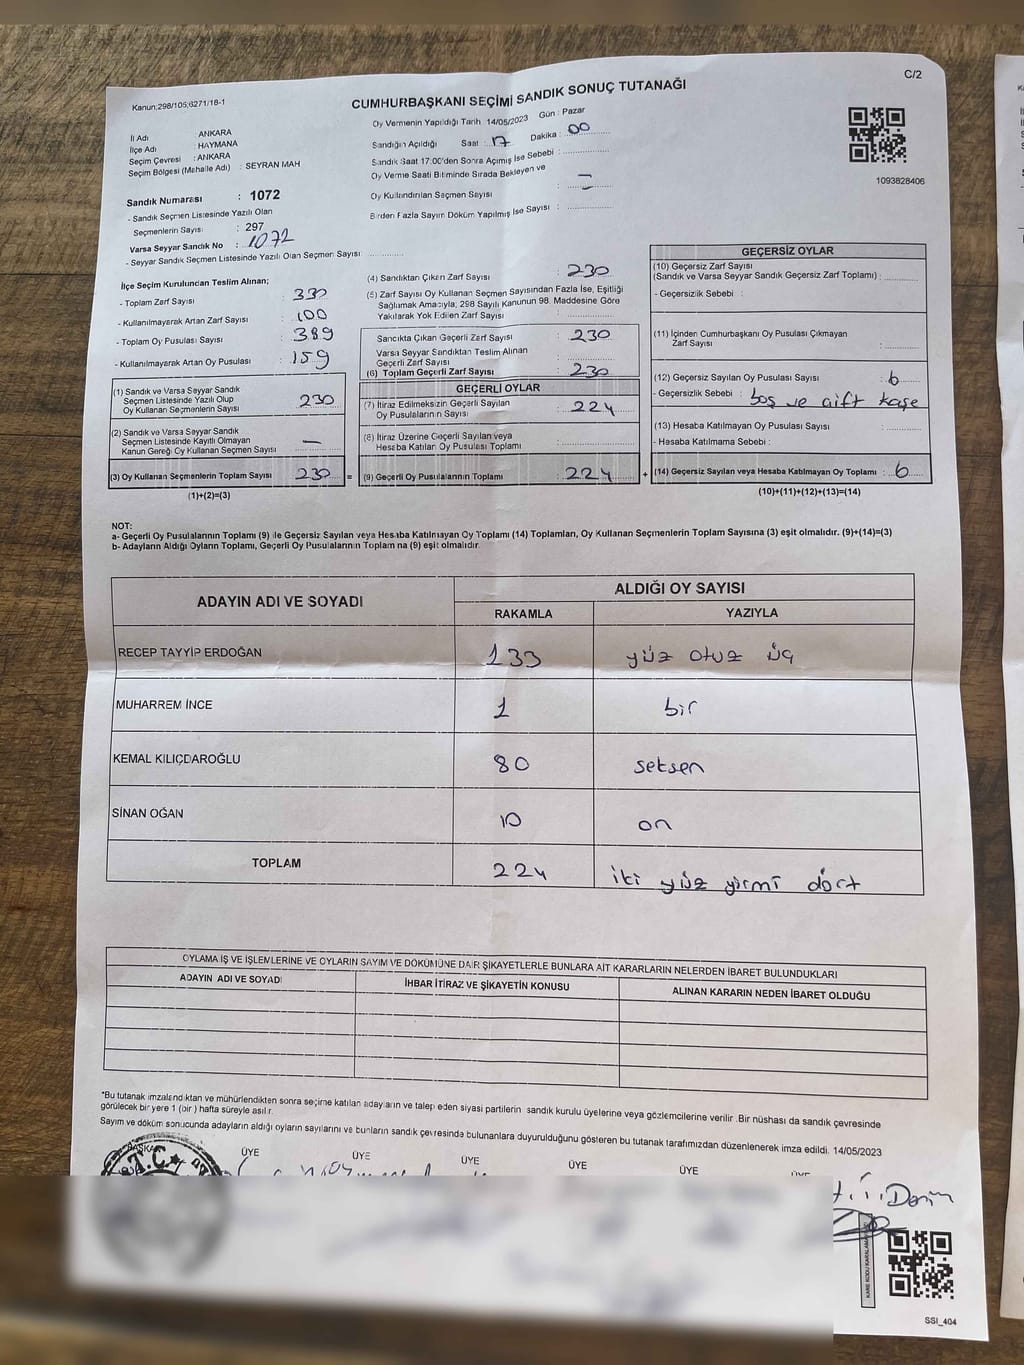 C/2
Kanun;298/105;6271/18-1
CUMHURBAŞKANI SEÇİMİ SANDIK SONUÇ TUTANAĞI
İl Adı ANKARA
İlçe Adı HAYMANA
Seçim Çevresi : ANKARA
Seçim Bölgesi (Mahalle Adı) : SEYRAN MAH
Oy Vermenin Yapıldığı Tarih 14/05/2023 Gün : Pazar
Sandığın Açıldığı Saat : 17 Dakika : 00
Sandık Saat 17:00'den Sonra Açımış İse Sebebi :
Oy Verme Saati Bitiminde Sırada Bekleyen ve
Oy Kullandırılan Seçmen Sayısı : —
Birden Fazla Sayım Döküm Yapılmış İse Sayısı :
1093828406
Sandık Numarası : 1072
- Sandık Seçmen Listesinde Yazılı Olan
Seçmenlerin Sayısı : 297
Varsa Seyyar Sandık No : 1072
- Seyyar Sandık Seçmen Listesinde Yazılı Olan Seçmen Sayısı
İlçe Seçim Kurulundan Teslim Alınan;
- Toplam Zarf Sayısı : 330
- Kullanılmayarak Artan Zarf Sayısı : 100
- Toplam Oy Pusulası Sayısı : 389
- Kullanılmayarak Artan Oy Pusulası : 159
(1) Sandık ve Varsa Seyyar Sandık
Seçmen Listesinde Yazılı Olup
Oy Kullanan Seçmenlerin Sayısı : 230
(2) Sandık ve Varsa Seyyar Sandık
Seçmen Listesinde Kayıtlı Olmayan
Kanun Gereği Oy Kullanan Seçmen Sayısı : —
(3) Oy Kullanan Seçmenlerin Toplam Sayısı : 230 =
(1)+(2)=(3)
(4) Sandıktan Çıkan Zarf Sayısı : 230
(5) Zarf Sayısı Oy Kullanan Seçmen Sayısından Fazla İse, Eşitliği
Sağlamak Amacıyla; 298 Sayılı Kanunun 98. Maddesine Göre
Yakılarak Yok Edilen Zarf Sayısı :
Sandıkta Çıkan Geçerli Zarf Sayısı : 230
Varsa Seyyar Sandıktan Teslim Alınan
Geçerli Zarf Sayısı
(6) Toplam Geçerli Zarf Sayısı : 230
GEÇERLİ OYLAR
(7) İtiraz Edilmeksizin Geçerli Sayılan
Oy Pusulalarının Sayısı : 224
(8) İtiraz Üzerine Geçerli Sayılan veya
Hesaba Katılan Oy Pusulası Toplamı
(9) Geçerli Oy Pusulalarının Toplamı : 224 +
GEÇERSİZ OYLAR
(10) Geçersiz Zarf Sayısı
(Sandık ve Varsa Seyyar Sandık Geçersiz Zarf Toplamı) :
- Geçersizlik Sebebi :
(11) İçinden Cumhurbaşkanı Oy Pusulası Çıkmayan
Zarf Sayısı :
(12) Geçersiz Sayılan Oy Pusulası Sayısı : 6
- Geçersizlik Sebebi : boş ve çift kaşe
(13) Hesaba Katılmayan Oy Pusulası Sayısı :
- Hesaba Katılmama Sebebi :
(14) Geçersiz Sayılan veya Hesaba Katılmayan Oy Toplamı : 6
(10)+(11)+(12)+(13)=(14)
NOT:
a- Geçerli Oy Pusulalarının Toplamı (9) ile Geçersiz Sayılan veya Hesaba Katılmayan Oy Toplamı (14) Toplamları, Oy Kullanan Seçmenlerin Toplam Sayısına (3) eşit olmalıdır. (9)+(14)=(3)
b- Adayların Aldığı Oyların Toplamı, Geçerli Oy Pusulalarının Toplamına (9) eşit olmalıdır.
ADAYIN ADI VE SOYADI ALDIĞI OY SAYISI
RAKAMLA YAZIYLA
RECEP TAYYİP ERDOĞAN 133 yüz otuz üç
MUHARREM İNCE 1 bir
KEMAL KILIÇDAROĞLU 80 seksen
SİNAN OĞAN 10 on
TOPLAM 224 iki yüz yirmi dört
OYLAMA İŞ VE İŞLEMLERİNE VE OYLARIN SAYIM VE DÖKÜMÜNE DAİR ŞİKAYETLERLE BUNLARA AİT KARARLARIN NELERDEN İBARET BULUNDUKLARI
ADAYIN ADI VE SOYADI İHBAR İTİRAZ VE ŞİKAYETİN KONUSU ALINAN KARARIN NEDEN İBARET OLDUĞU
*Bu tutanak imzalandıktan ve mühürlendikten sonra seçime katılan adayların ve talep eden siyasi partilerin sandık kurulu üyelerine veya gözlemcilerine verilir .Bir nüshası da sandık çevresinde
görülecek bir yere 1 (bir ) hafta süreyle asılır.
Sayım ve döküm sonucunda adayların aldığı oyların sayılarını ve bunların sandık çevresinde bulunanlara duyurulduğunu gösteren bu tutanak tarafımızdan düzenlenerek imza edildi. 14/05/2023
BAŞKAN ÜYE ÜYE ÜYE ÜYE ÜYE
T.C.
SSI_404